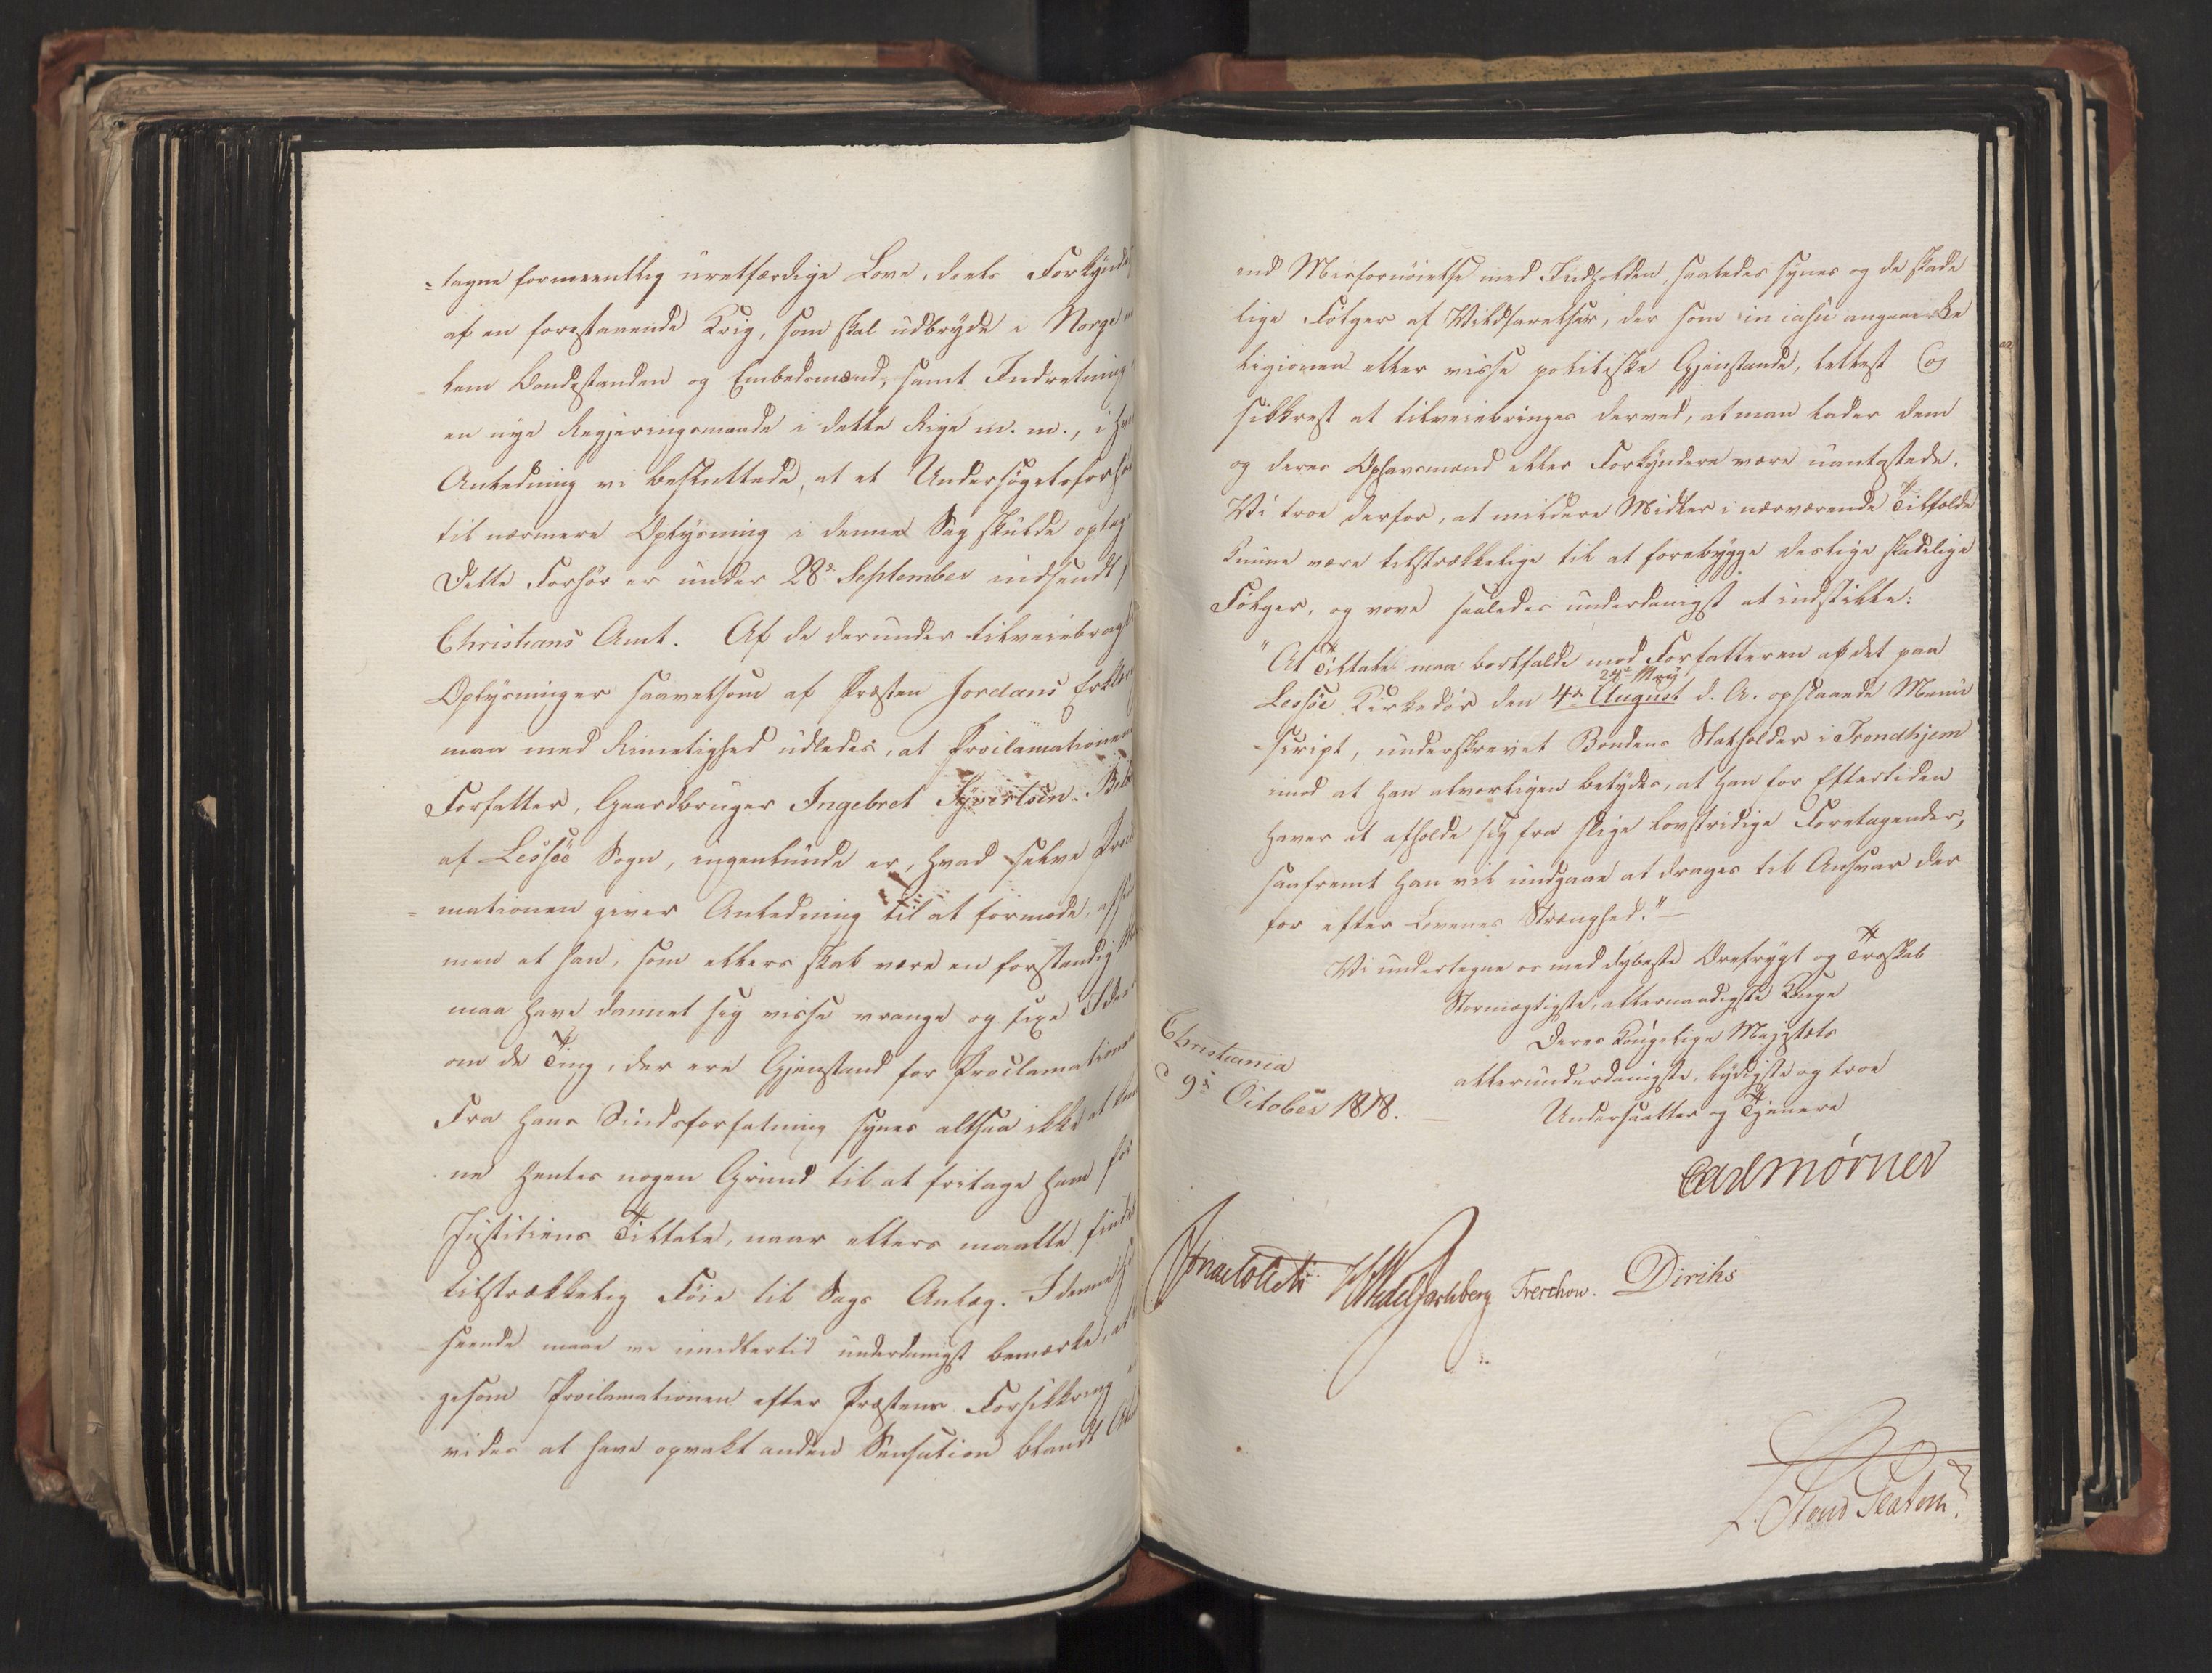 =tagne formeentlig uretfærdige Love, deels Forkynde
af en forestaaende Krig, som skal udbryde i Norge
lem Bondestanden og Embedsmænd, samt Indretning
en nye Regjeringsmaade i dette Rige m. m., i
Anledning vi besluttede, at et Undersøgelsesforhør
til nærmere Oplysning i denne Sag skulde optag
Dette Forhør er under 28de September indsendt
Christians Amt. Af de derunder tilveiebragte
Oplysninger saavelsom af Præsten Jordans Erklær
maa med Rimelighed udledes, at Proclamationen
Forfatter, Gaardbruger Ingebret Syvertsen
af Lessøe Sogn, ingenlunde er, hvad selve Procla
=mationen giver Anledning til at formode,
men at han, som ellers skal være en forstandig
maa have dannet sig visse vrange og fixe Ideer
om de Ting, der ere Gjenstand for Proclamationen
Fra hans Sindsforfatning synes altsaa ikke at kun
ne hentes nogen Grund til at fritage ham for
Justitiens Tiltale, naar ellers maatte findes
tilstrækkelig Føie til Sags Anlæg. I denne
seende maae vi imidlertid underdanigst bemærke, at
gesom Proclamationen efter Præstens Forsikkring
vides at have opvakt anden Sensation blandt
end Misfornøielse med Indholdet, saaledes synes og de skade
lige Følger af Vildfarelser, der som in casu angaaer Re
ligionen eller visse politiske Gjenstande, lettest og
sikkrest at tilveiebringes derved, at man lader dem
og deres Ophavsmænd eller Forkyndere være uantastede.
Vi troe derfor, at mildere Midler i nærværende Tilfælde
kunne være tilstrækkelige til at forebygge deslige skadelige
Følger, og vove saaledes underdanigst at indstille:
"At Tiltale maa bortfalde mod Forfatteren af det paa
24de May
Lessøe Kirkedør den 4de August d. A. opslaaede Manu
=script, underskrevet Bondens Statholder i Trondhjem
imod at han alvorligen betydes, at han for Eftertiden
haver at afholde sig fra slige lovstridige Foretagender,
saafremt han vil undgaae at drages til Ansvar der
for efter Lovenes Strænghed."—
Vi undertegne os med dybeste Ærefrygt og Troskab
Stormægtigste, allernaadigste Konge
Deres Kongelige Majestæts
allerunderdanigste, lydigste og troe
Undersaatter og Tjenere
Christiania
d 9de October 1818. —
Carl Mörner
Jonas Collett HWedel Jarlsberg Treschow. Diriks